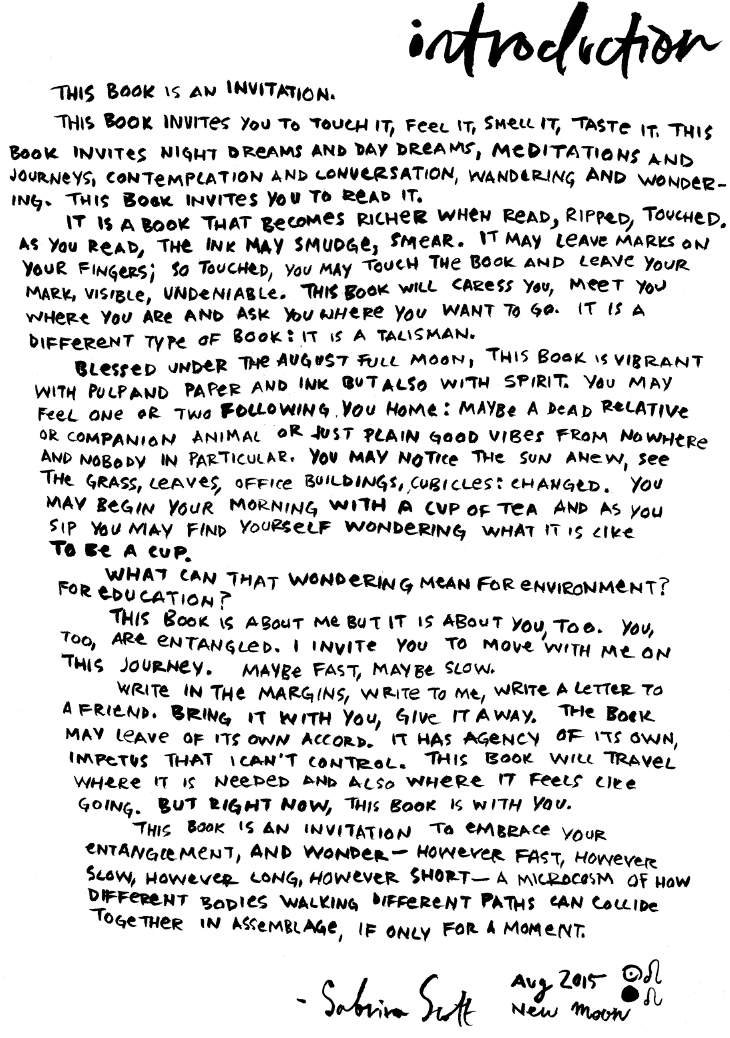 introduction
THIS BOOK IS AN INVITATION.
THIS BOOK INVITES YOU TO TOUCH IT, FEEL IT, SMELL IT, TASTE IT. THIS
BOOK INVITES NIGHT DREAMS AND DAY DREAMS, MEDITATIONS AND
JOURNEYS, CONTEMPLATION AND CONVERSATION, WANDERING AND WONDER-
ING. THIS BOOK INVITES YOU TO READ IT.
IT IS A BOOK THAT BECOMES RICHER WHEN READ, RIPPED, TOUCHED.
AS YOU READ, THE INK MAY SMUDGE, SMEAR. IT MAY LEAVE MARKS ON
YOUR FINGERS; SO TOUCHED, YOU MAY TOUCH THE BOOK AND LEAVE YOUR
MARK, VISIBLE, UNDENIABLE. THIS BOOK WILL CARESS YOU, MEET YOU
WHERE YOU ARE AND ASK YOU WHERE YOU WANT TO GO. IT IS A
DIFFERENT TYPE OF BOOK: IT IS A TALISMAN.
BLESSED UNDER THE AUGUST FULL MOON, THIS BOOK IS VIBRANT
WITH PULP AND PAPER AND INK BUT ALSO WITH SPIRIT. YOU MAY
FEEL ONE OR TWO FOLLOWING YOU HOME: MAYBE A DEAD RELATIVE
OR COMPANION ANIMAL OR JUST PLAIN GOOD VIBES FROM NOWHERE
AND NOBODY IN PARTICULAR. YOU MAY NOTICE THE SUN ANEW, SEE
THE GRASS, LEAVES, OFFICE BUILDINGS, CUBICLES: CHANGED. YOU
MAY BEGIN YOUR MORNING WITH A CUP OF TEA AND AS YOU
SIP YOU MAY FIND YOURSELF WONDERING WHAT IT IS LIKE
TO BE A CUP.
WHAT CAN THAT WONDERING MEAN FOR ENVIRONMENT?
FOR EDUCATION?
THIS BOOK IS ABOUT ME BUT IT IS ABOUT YOU, TOO. YOU,
TOO, ARE ENTANGLED. I INVITE YOU TO MOVE WITH ME ON
THIS JOURNEY. MAYBE FAST, MAYBE SLOW.
WRITE IN THE MARGINS, WRITE TO ME, WRITE A LETTER TO
A FRIEND. BRING IT WITH YOU, GIVE IT AWAY. THE BOOK
MAY LEAVE OF ITS OWN ACCORD. IT HAS AGENCY OF ITS OWN,
IMPETUS THAT I CAN'T CONTROL. THIS BOOK WILL TRAVEL
WHERE IT IS NEEDED AND ALSO WHERE IT FEELS LIKE
GOING. BUT RIGHT NOW, THIS BOOK IS WITH YOU.
THIS BOOK IS AN INVITATION TO EMBRACE YOUR
ENTANGLEMENT, AND WONDER — HOWEVER FAST, HOWEVER
SLOW, HOWEVER LONG, HOWEVER SHORT — A MICROCOSM OF HOW
DIFFERENT BODIES WALKING DIFFERENT PATHS CAN COLLIDE
TOGETHER IN ASSEMBLAGE, IF ONLY FOR A MOMENT.
- Sabrina Scott
Aug 2015 ☉♌
New Moon ●♌